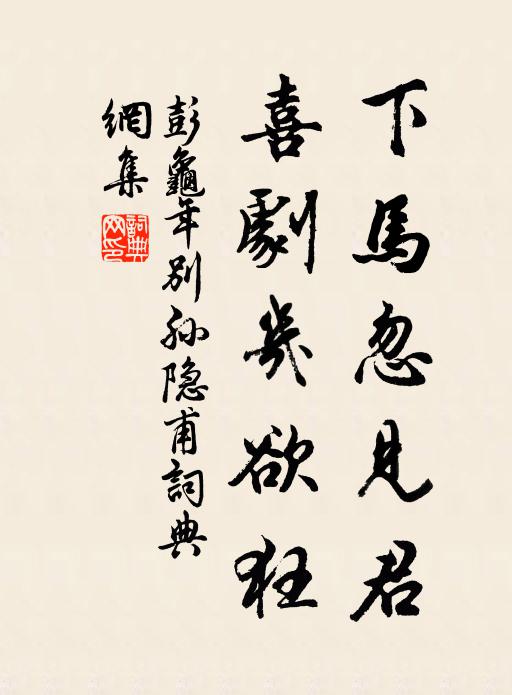 下馬忽見君
喜劇幾欲狂
彭龜年別孫隐甫詞典
網集
詞典
网印